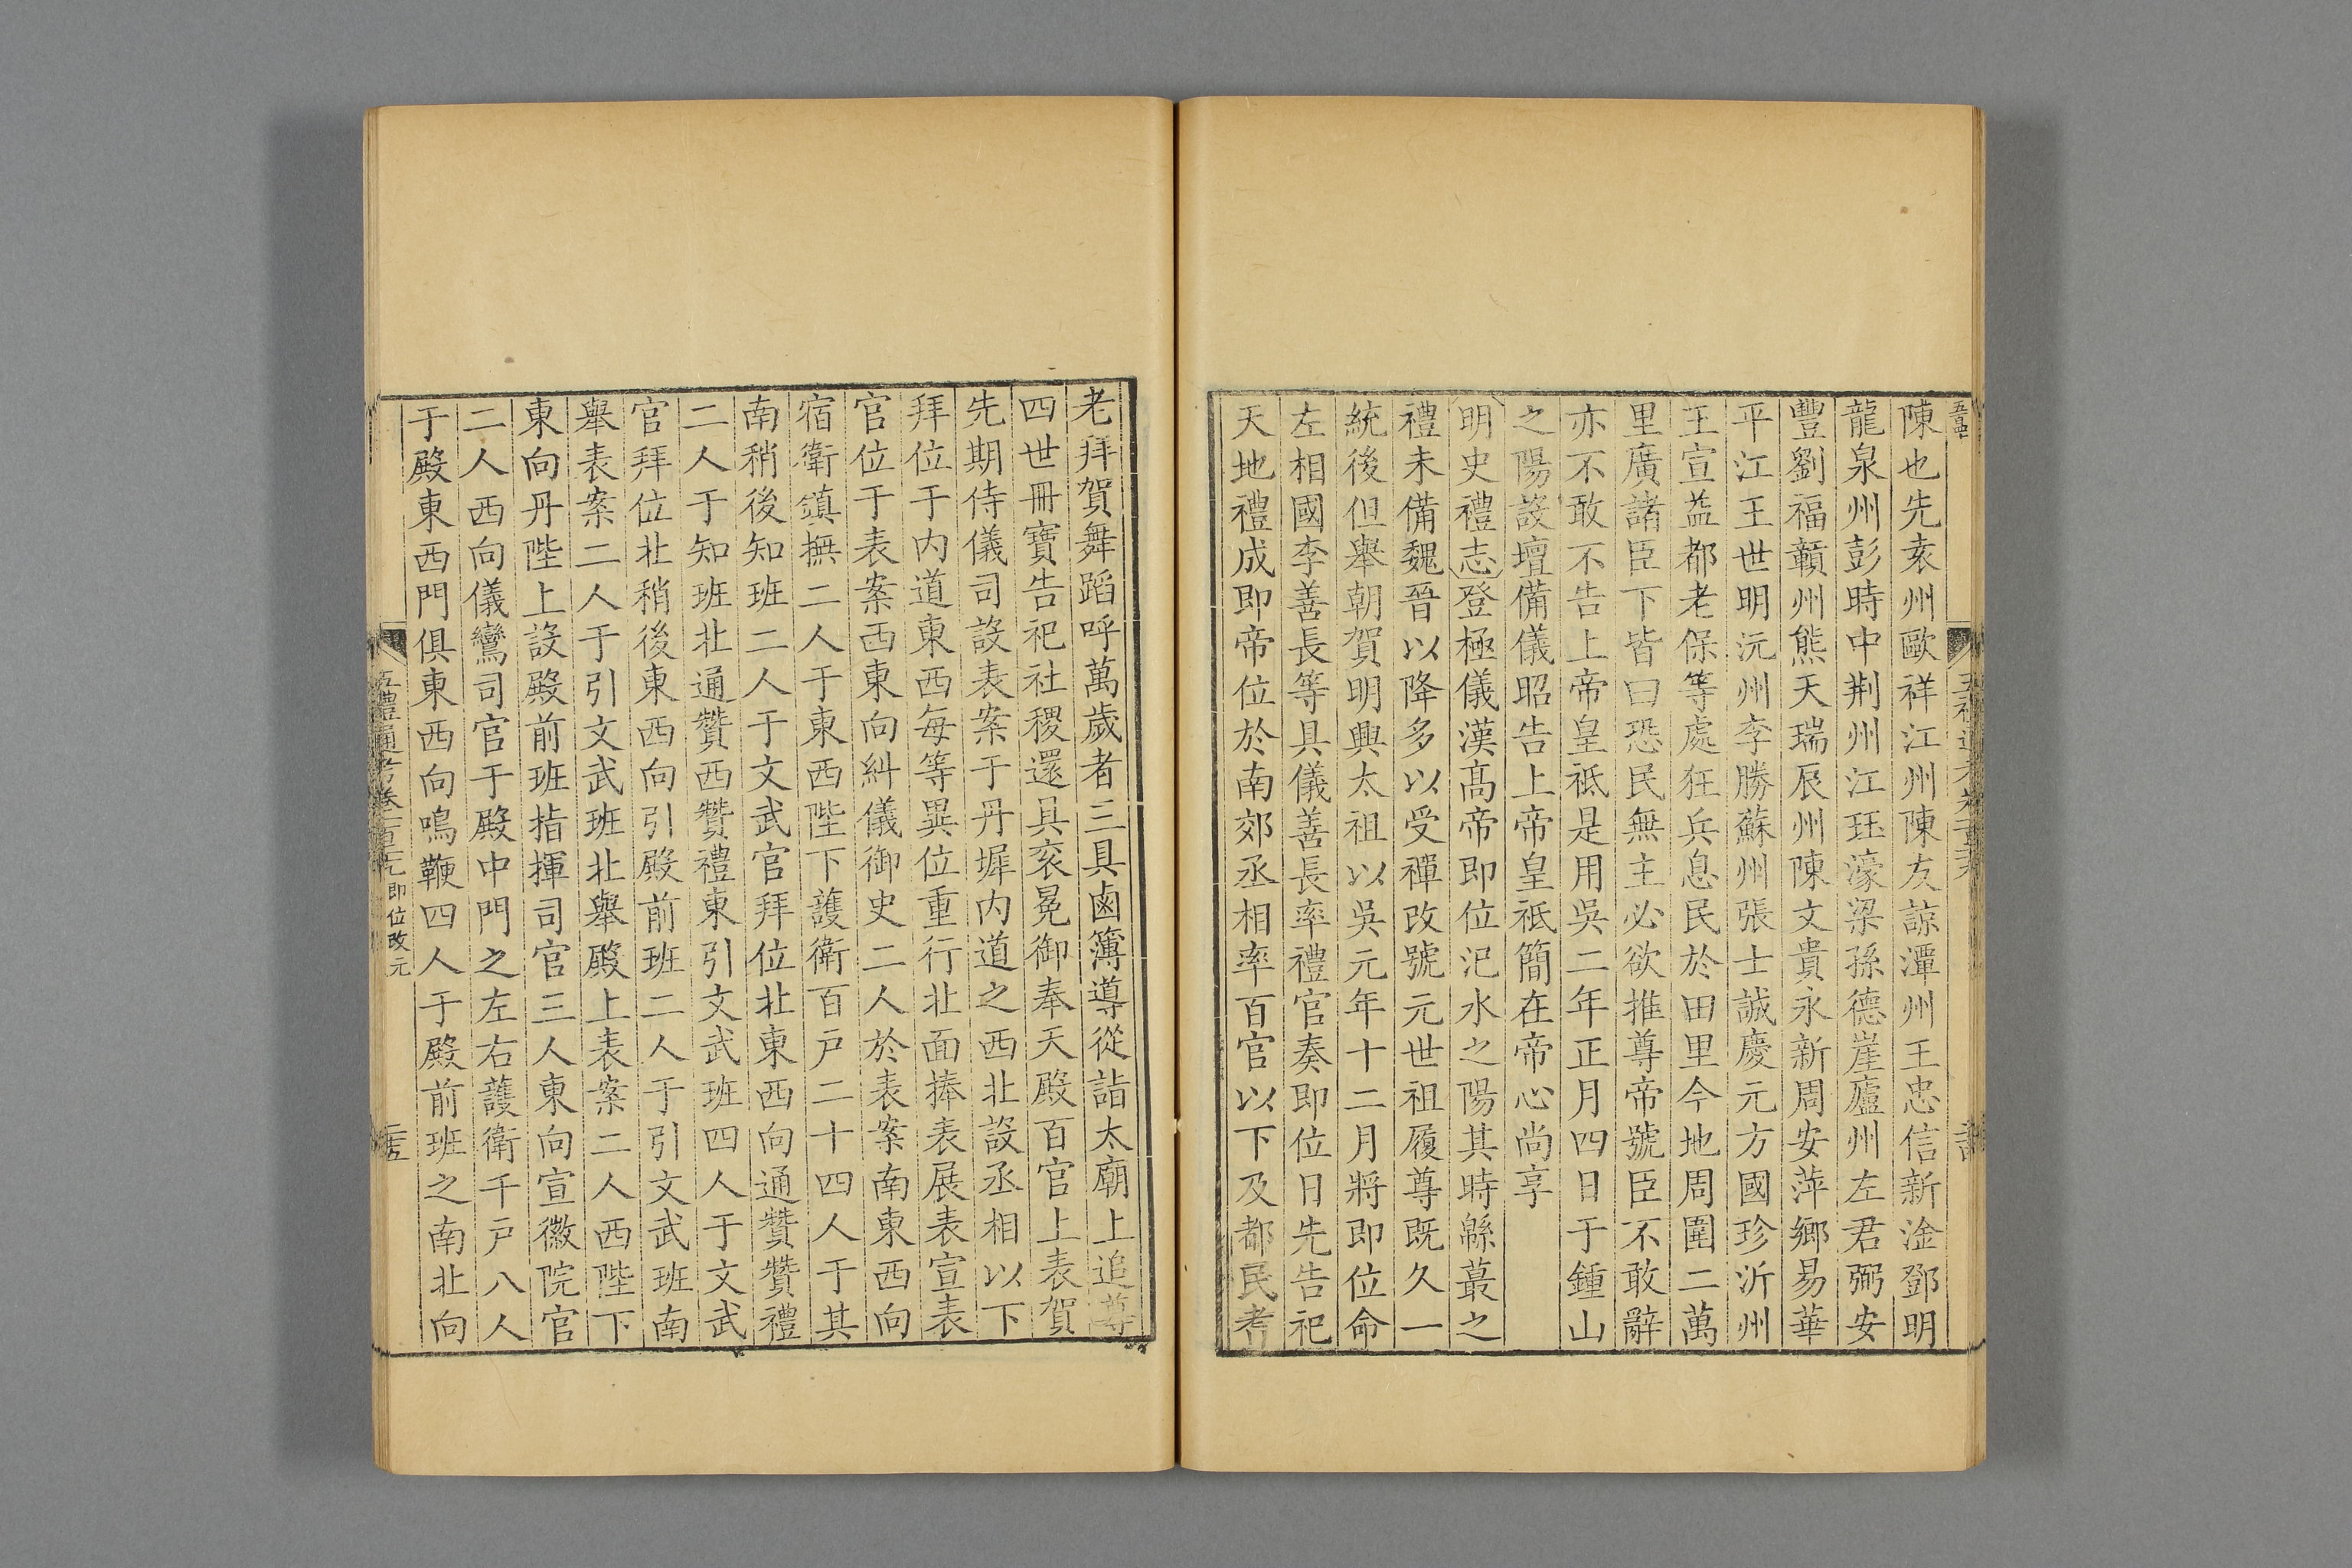 陳也先袁州歐祥江州陳友諒潭州王忠信新淦鄧明
龍泉州彭時中荆州江珏濠梁孫德崖廬州左君弼安
豐劉福贑州熊天瑞辰州陳文貴永新周安萍鄉易華
平江王世明沅州李勝蘇州張士誠慶元方國珍沂州
王宣益都老保等處狂兵息民於田里今地周圍二萬
里廣諸臣下皆曰恐民無主必欲推尊帝號臣不敢辭
亦不敢不告上帝皇祗是用吳二年正月四日于鍾山
之陽設壇備儀昭告上帝皇祗簡在帝心尚享
明史禮志登極儀漢高帝即位汜水之陽其時緜蕞之
禮未備魏晉以降多以受禪改號元世祖履尊既久一
統後但舉朝賀明興太祖以吳元年十二月將即位命
左相國李善長等具儀善長率禮官奏即位日先告祀
天地禮成即帝位於南郊丞相率百官以下及都民耆
老拜賀舞蹈呼萬歲者三具鹵簿導從詣太廟上追尊
四世冊寶告祀社稷還具衮冕御奉天殿百官上表賀
先期侍儀司設表案于丹墀内道之西北設丞相以下
拜位于内道東西每等異位重行北面捧表展表宣表
官位于表案西東向糾儀御史二人於表案南東西向
宿衛鎮撫二人于東西陛下護衛百戸二十四人于其
南稍後知班二人于文武官拜位北東西向通贊贊禮
二人于知班北通贊西贊禮東引文武班四人于文武
官拜位北稍後東西向引殿前班二人于引文武班南
舉表案二人于引文武班北舉殿上表案二人西陛下
東向丹陛上設殿前班指揮司官三人東向宣徽院官
二人西向儀鸞司官于殿中門之左右護衛千戸八人
于殿東西門俱東西向鳴鞭四人于殿前班之南北向
五禮通考卷一百二十九即位改元
二十五